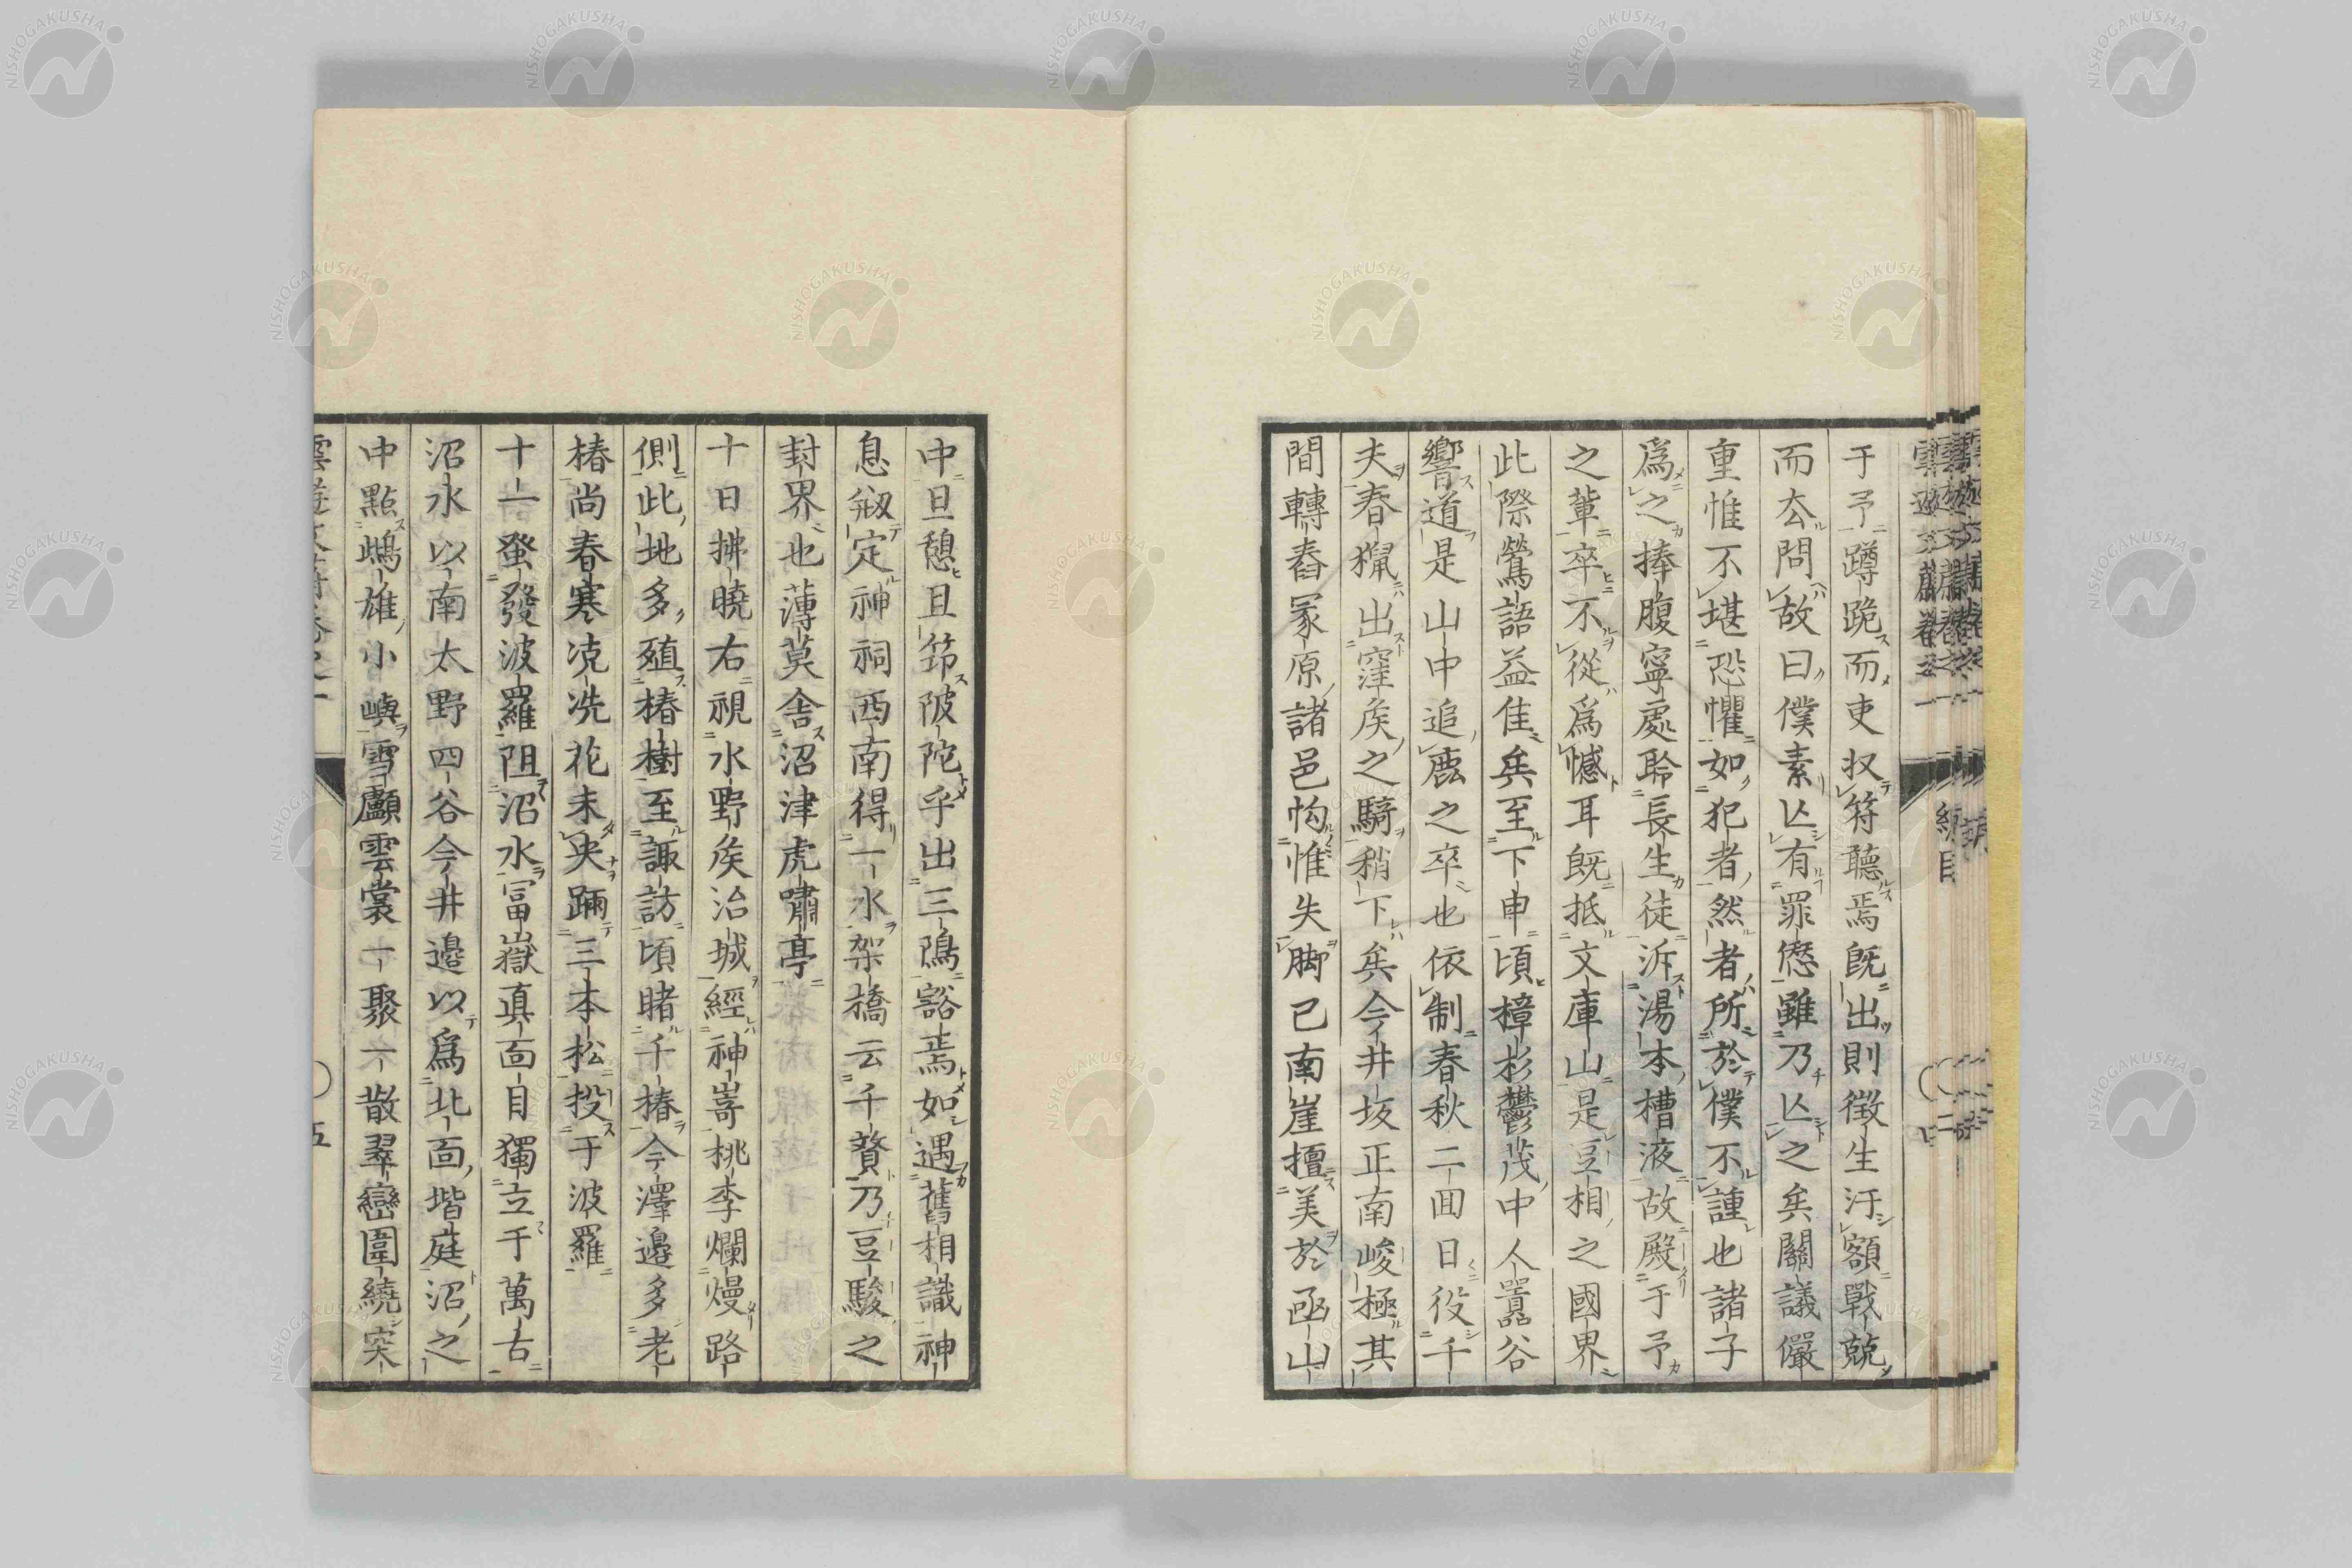 于予蹲跪而吏収符聽焉既出則徵生汙額戰兢
而厺問故曰僕素亾有罪愆雖乃亾之矣關議儼
重惟不堪恐懼如犯者然者所於僕不諥也諸子
爲之捧腹寧處聆長生徒泝湯本槽液故殿于予
之輩卒不從爲憾耳既抵文庫山是豆相之國界
此際鶯語益佳矣至下申頃樟杉鬱茂中人嚚谷
響道是山中追鹿之卒也依制春秋二囬日役千
夫春獵出窪矦之騎稍下矣今井坂正南峻極其
間轉舂冡原諸邑恟惟失脚已南崖擅美於函山
中旦憩且筇陂陀乎出三隝豁焉如遇舊相識神
息剱定神祠西南得一水架橋云千贅乃豆駿之
封界也薄莫舍沼津虎嘯亭
十日拂曉右視水野矦治城經神嵜桃李爛熳路
側此地多殖椿樹至諏訪頃睹千椿今澤邊多老
椿尚春寒凌冼花未央䠙三本松投于波羅
十一蛩發波羅阻沼水冨嶽真面目獨立于萬古
沼水以南太野四谷今井邊以爲北面堦庭沼之
中點鴟雄小嶼雪顱雲裳一聚一散翠巒圍繞突
NISHOGAKUSHA